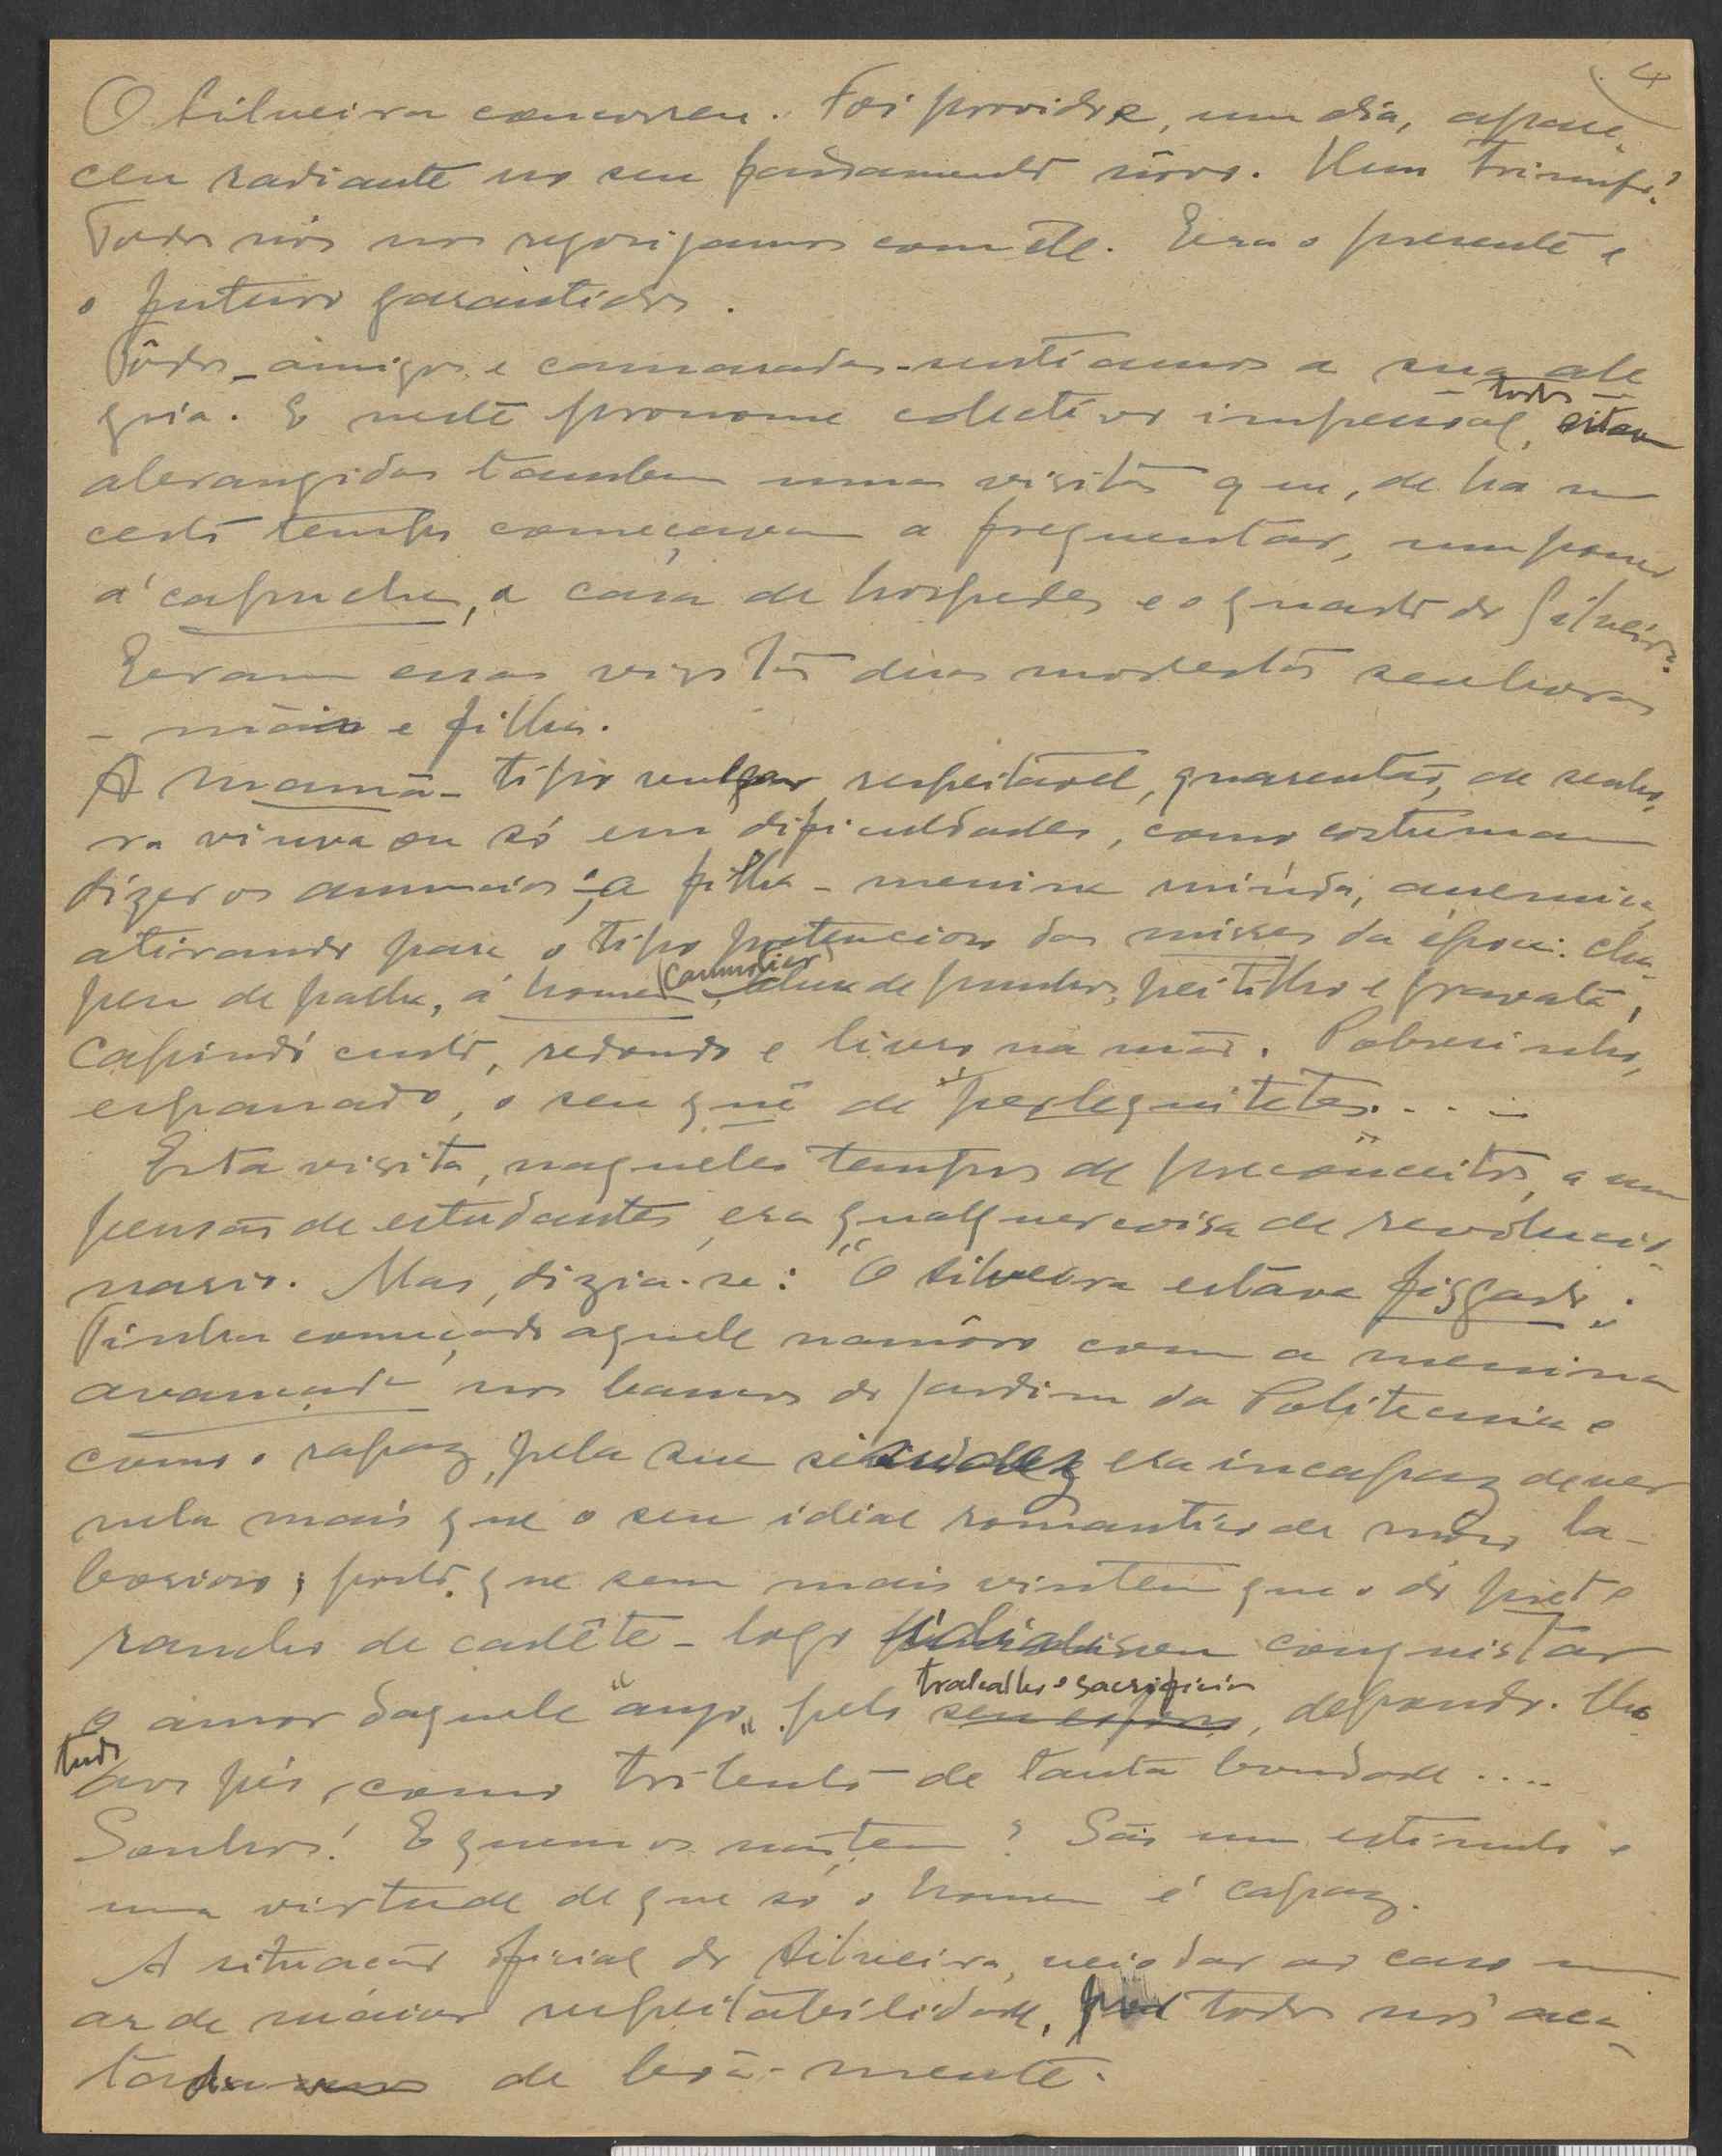 4
O Silveira concorreu. Foi provido e, um dia, apare-
ceu radiante no seu fardamento nôvo. Um triunfo!
Todos nós nos regosijamos com êle. Era o presente e
o futuro garantidos.
Tôdos - amigos e camaradas - sentiamos a sua ale
gria. E neste pronome colectivo impessoal, - todos -
abrangidas tambem umas visitas que, de ha um
certo tempo começavam a frequentar, um pouco
á capucha, a casa de hospedes e o quarto do Silveira.
Eram essas visitas duas modestas senhoras
- mãi e filha.
A mamã - tipo vulgar, respeitavel, quarentão, de senho-
ra viuva ou só em dificuldades, como costumam
dizer os anuncios; a filha - menina miúda, anemica,
atirando para o tipo pretencioso das misses da época: cha-
peu de palha, á homem (canotier), blusa de punhos, peitilho e gravata,
Capindó curto, redondo e livro na mão. Pobresinho,
espanado, o seu quê de "perlequitetes"....
Esta visita, naqueles tempos de preconceitos, a uma
pensão de estudantes, era qualquer coisa de revolucio-
nario. Mas, dizia-se: "O Silveira estava fisgado".
Tinha começado aquele namôro com a menina
avançada nos bancos do jardim da Politecnica e
como o rapaz, pela sua era incapaz de ver
nela mais que o seu idial romantico de moço la-
borioso; posto que sem mais vintem que o do pret e
rancho de cadête - logo conquistar
o amor daquele "anjo" pelo trabalho e sacrificio, depondo-lho
tudo aos pés, como tributo de tanta bondade....
Sonhos! E quem os não tem? São um estimulo e
uma virtude de que só o homem é capaz.
A situação oficial do Silveira, veio dar ao caso um
ar de maior respeitabilidade, por todos nós aca-
tada de boa-mente.